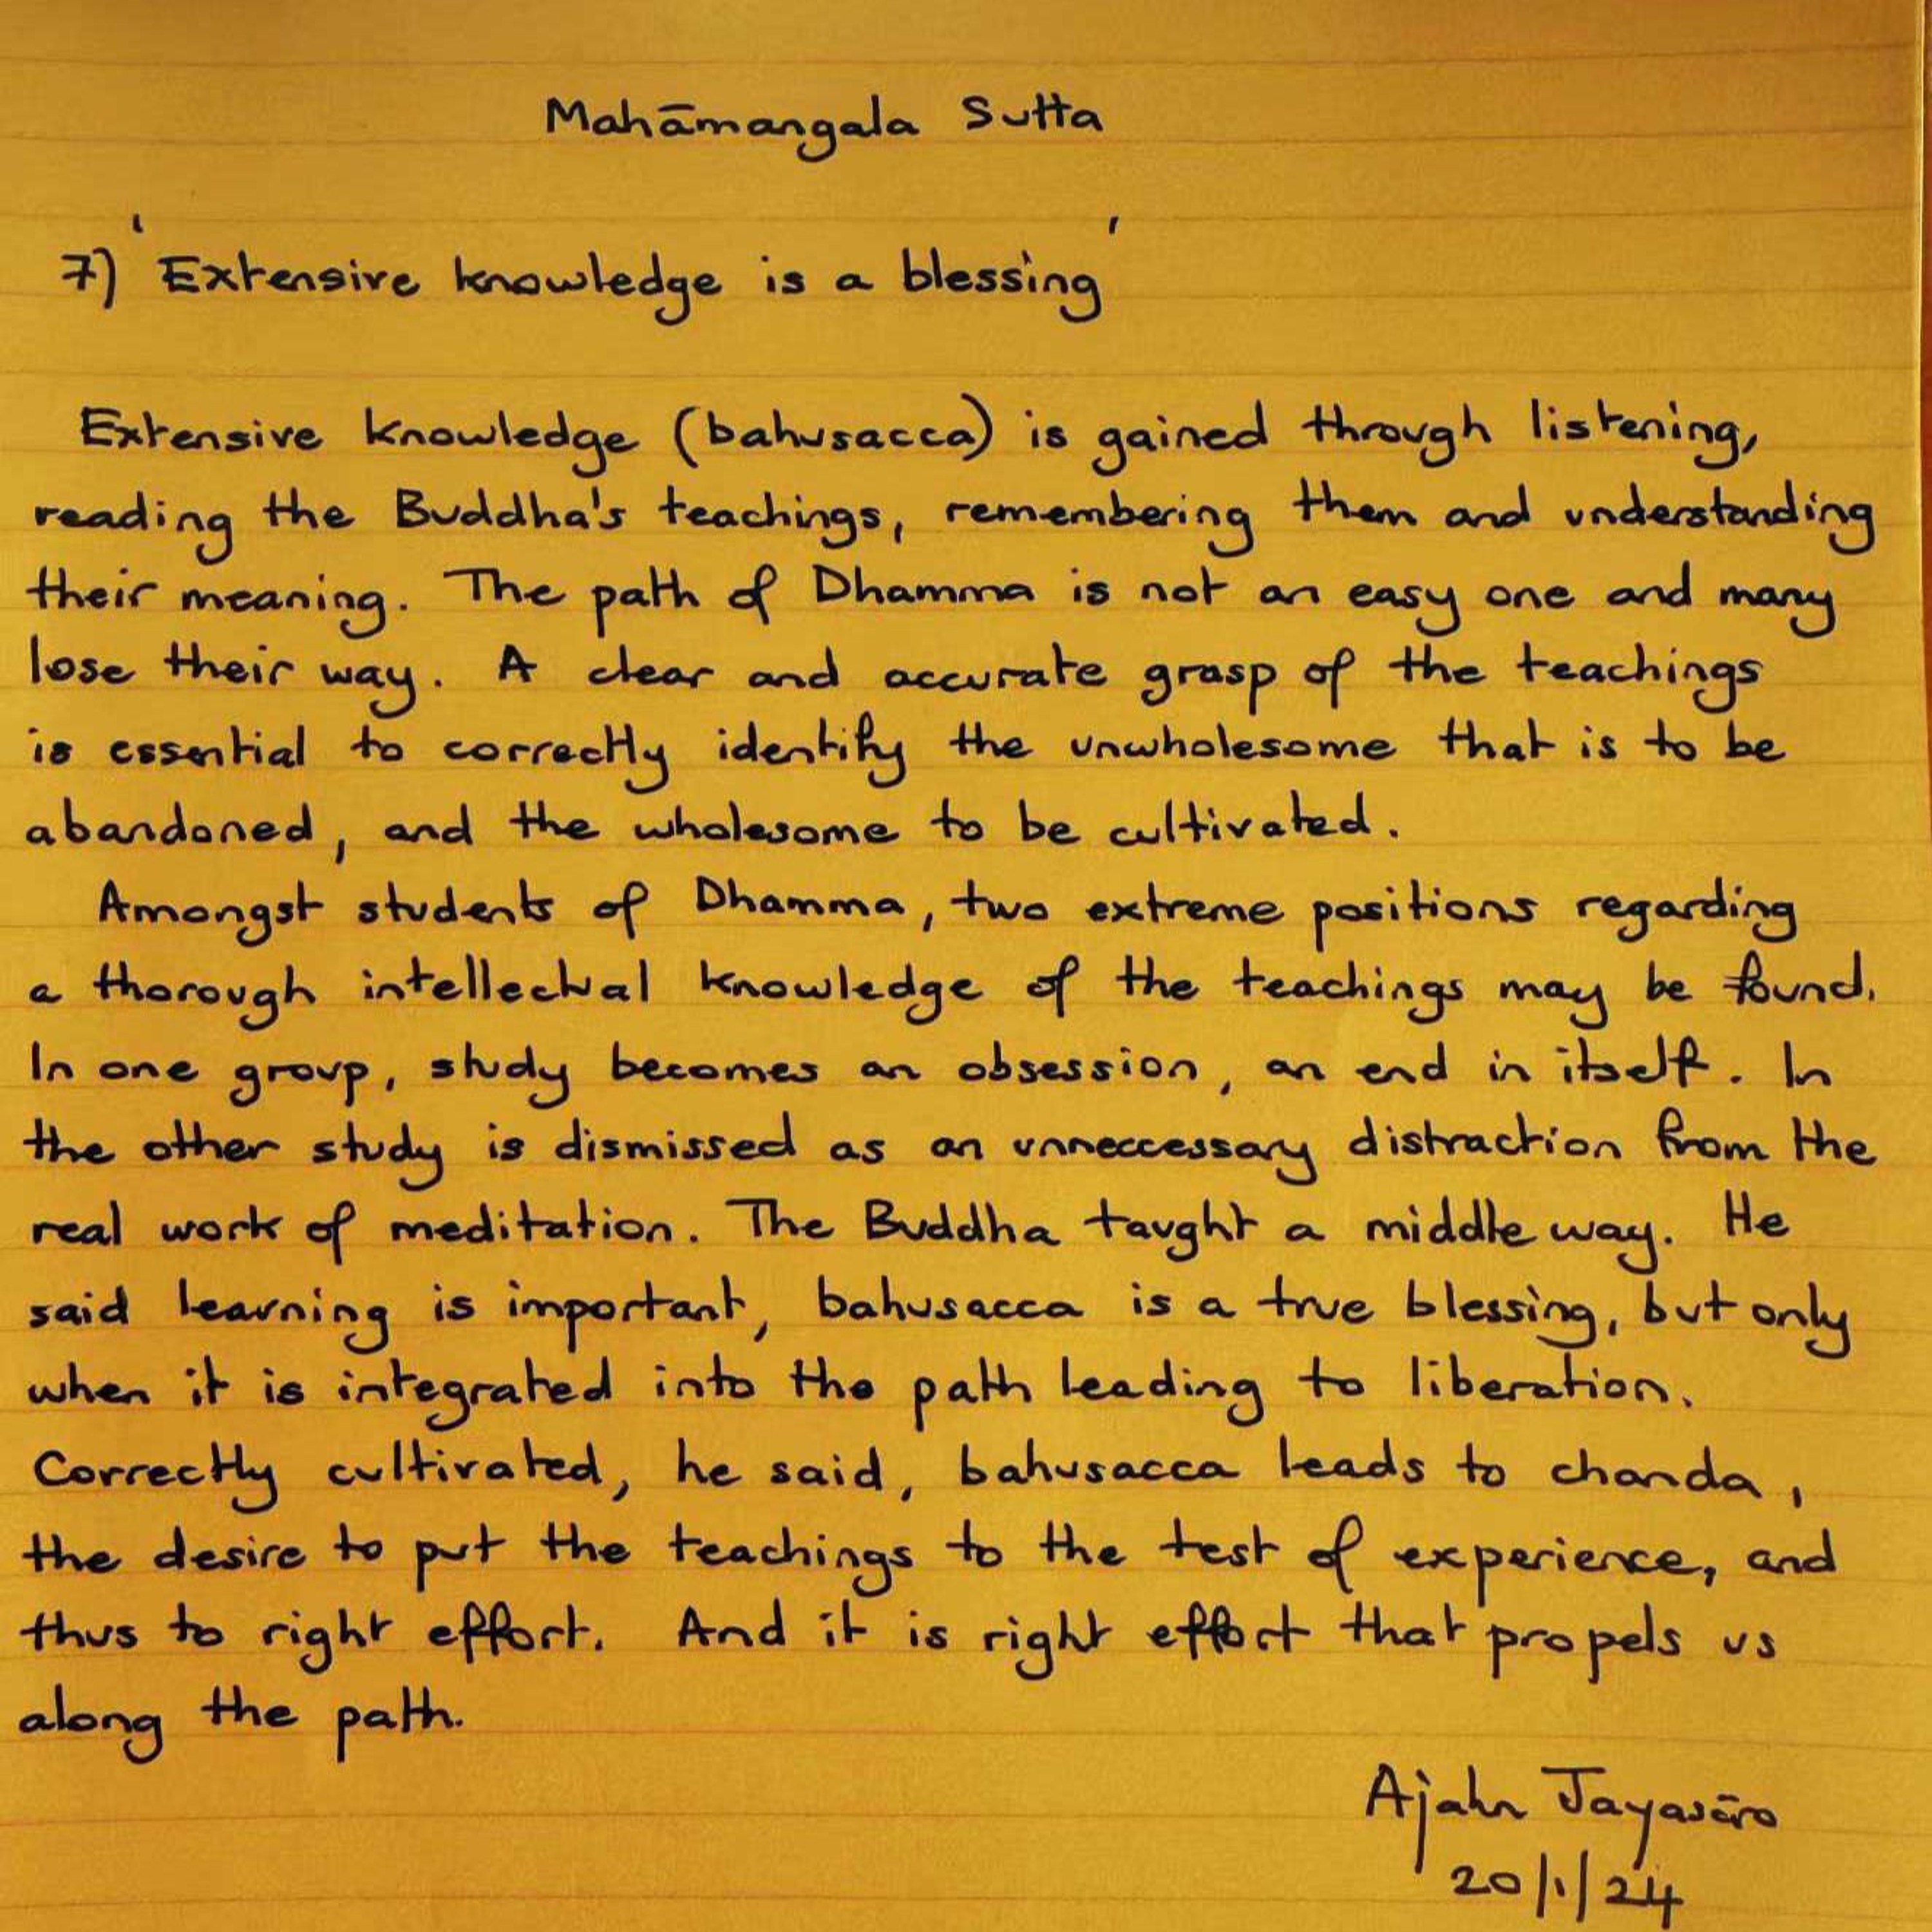 Mahāmangala Sutta
7) 'Extensive knowledge is a blessing'
Extensive knowledge (bahusacca) is gained through listening,
reading the Buddha's teachings, remembering them and understanding
their meaning. The path of Dhamma is not an easy one and many
lose their way. A clear and accurate grasp of the teachings
is essential to correctly identify the unwholesome that is to be
abandoned, and the wholesome to be cultivated.
Amongst students of Dhamma, two extreme positions regarding
a thorough intellectual knowledge of the teachings may be found.
In one group, study becomes an obsession, an end in itself. In
the other study is dismissed as an unneccessary distraction from the
real work of meditation. The Buddha taught a middle way. He
said learning is important, bahusacca is a true blessing, but only
when it is integrated into the path leading to liberation.
Correctly cultivated, he said, bahusacca leads to chanda,
the desire to put the teachings to the test of experience, and
thus to right effort. And it is right effort that propels us
along the path.
Ajahn Jayasāro
20/1/24